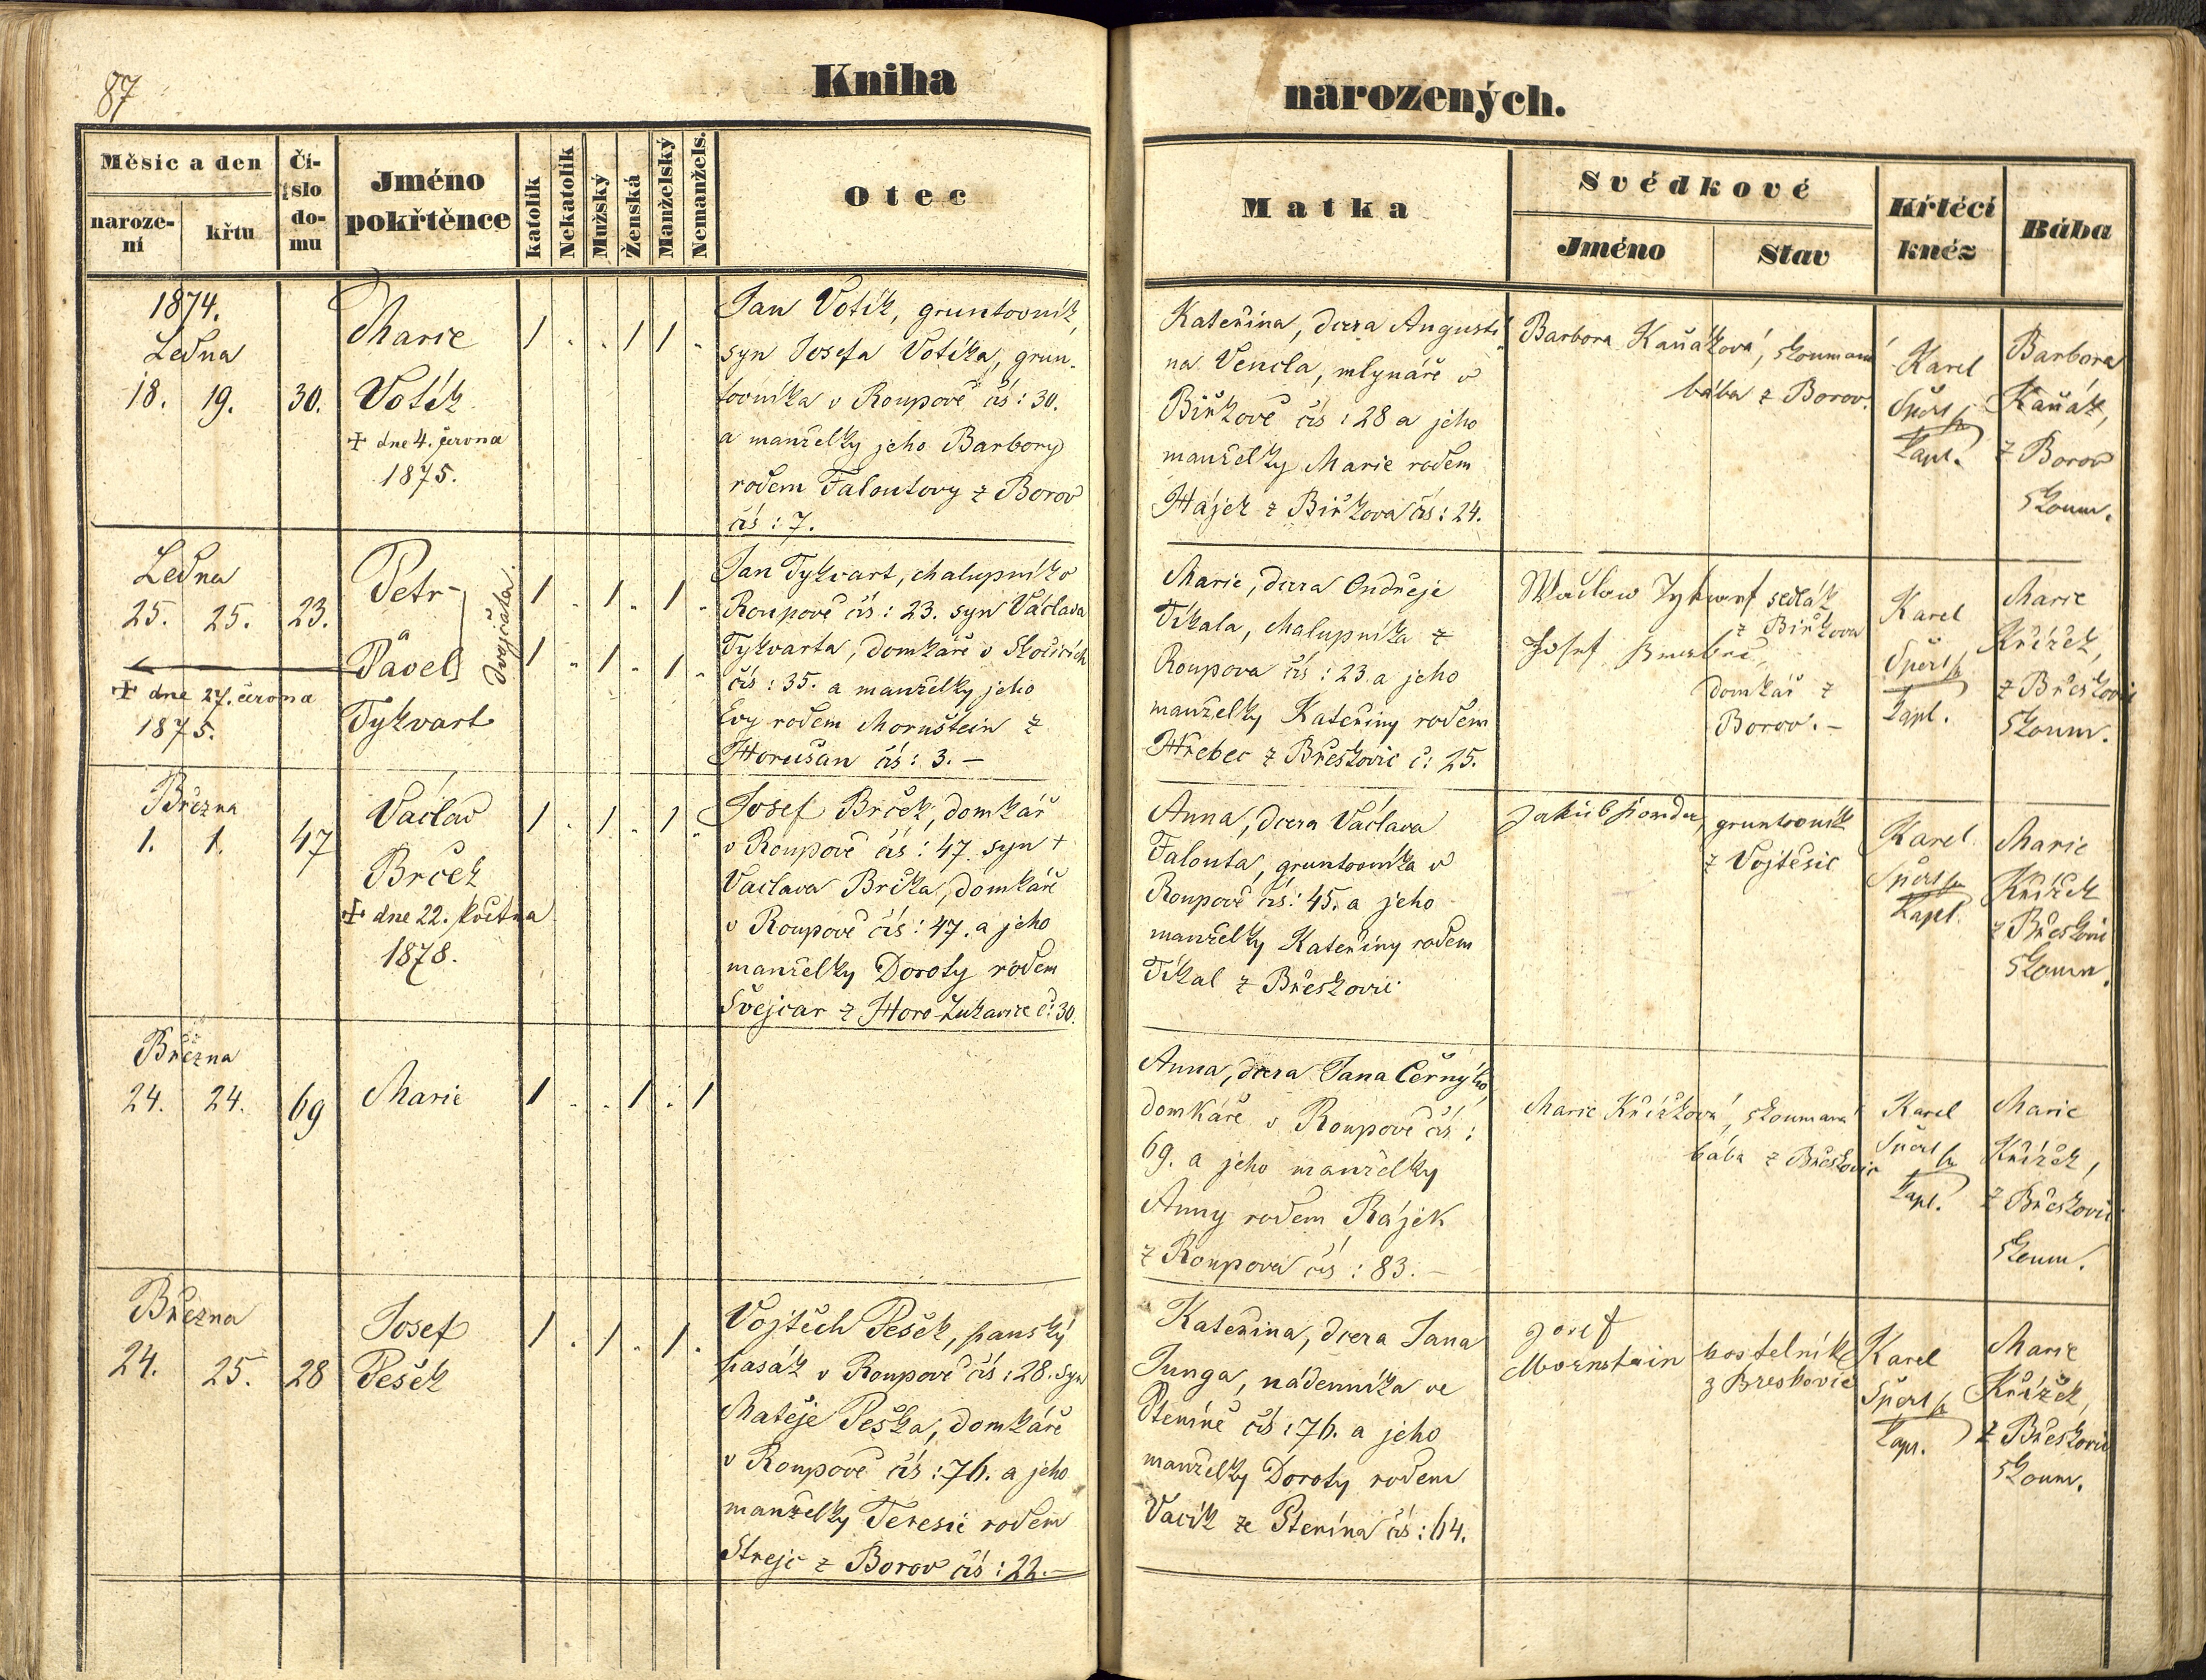 87
Kniha
narozených.
Měsíc a den
naroze-
ní
křtu
Čí-
slo
do-
mu
Jméno
pokřtěnce
katolík
Nekatolík
Mužský
Ženská
Manželský
Nemanžels.
Otec
Matka
Svědkové
Jméno
Stav
Křtěcí
kněz
Bába
1874.
Ledna
18. 19. 30.
Marie
Votík
+ dne 4. června
1875.
1 . . 1 1 .
Jan Votík, gruntovník,
syn Josefa Votíka, grun-
tovníka v Roupově čís: 30.
a manželky jeho Barbory
rodem Faloutovy z Borov
čís: 7.
Kateřina, dcera Augusti-
na Vencla, mlynáře v
Biřkově čís: 28 a jeho
manželky Marie rodem
Hájek z Biřkova čís: 24.
Barbora Kaňáková, zkoumaná
bába z Borov.
Karel
kapl.
Barbora
Kaňák,
z Borov
zkoum.
Ledna
25. 25. 23.
Petr
a
Pavel
Tykvart
dvojčata.
+ dne 27. června
1875.
1 . 1 . 1 .
1 . 1 . 1 .
Jan Tykvart, chalupník v
Roupově čís: 23. syn Václava
Tykvarta, domkáře v Skočicích
čís: 35. a manželky jeho
Evy rodem Mornštein z
Horušan čís: 3. –
Marie, dcera Ondřeje
Tikala, chalupníka z
Roupova čís: 23 a jeho
manželky Kateřiny rodem
Hřebec z Břeskovic č: 25.
Waclaw Tykwart sedlák
z Biřkova
Josef
domkář z
Borov. –
Karel
kapl.
Marie
Křížek,
z Břeskovic
zkoum.
Března
1. 1. 47
Václav
Brček
+ dne 22. května
1878.
1 . 1 . 1 .
Josef Brček, domkář
v Roupově čís: 47. syn +
Václava Brčka, domkáře
v Roupově čís: 47. a jeho
manželky Doroty rodem
Švejcar z Horo-Lukavice č: 30.
Anna, dcera Václava
Falouta, gruntovníka v
Roupově čís: 45. a jeho
manželky Kateřiny rodem
Tikal z Břeskovic
Jakub
gruntovník
z Vojtěšic
Karel
kapl.
Marie
Křížek
z Břeskovic
zkoum.
Března
24. 24. 69
Marie
1 . . 1 . 1
Anna, dcera Jana Černýho,
domkáře v Roupově čís:
69. a jeho manželky
Anny rodem Rájek
z Roupova čís: 83. –
Marie Křížková, zkoumaná
bába z Břeskovic
Karel
kapl.
Marie
Křížek,
z Břeskovic
zkoum.
Března
24. 25. 28
Josef
Pešek
1 . 1 . 1 .
Vojtěch Pešek, panský
pasák v Roupově čís: 28. syn
Matěje Peška, domkáře
v Roupově čís: 76. a jeho
manželky Teresie rodem
Strejc z Borov čís: 22. –
Kateřina, dcera Jana
Junga, nádenníka ve
Ptenině čís: 76. a jeho
manželky Doroty rodem
Vacík ze Ptenína čís: 64.
Josef
Mornstein kostelník
z Breskovic
Karel
kapl.
Marie
Křížek,
z Břeskovic
zkoum.